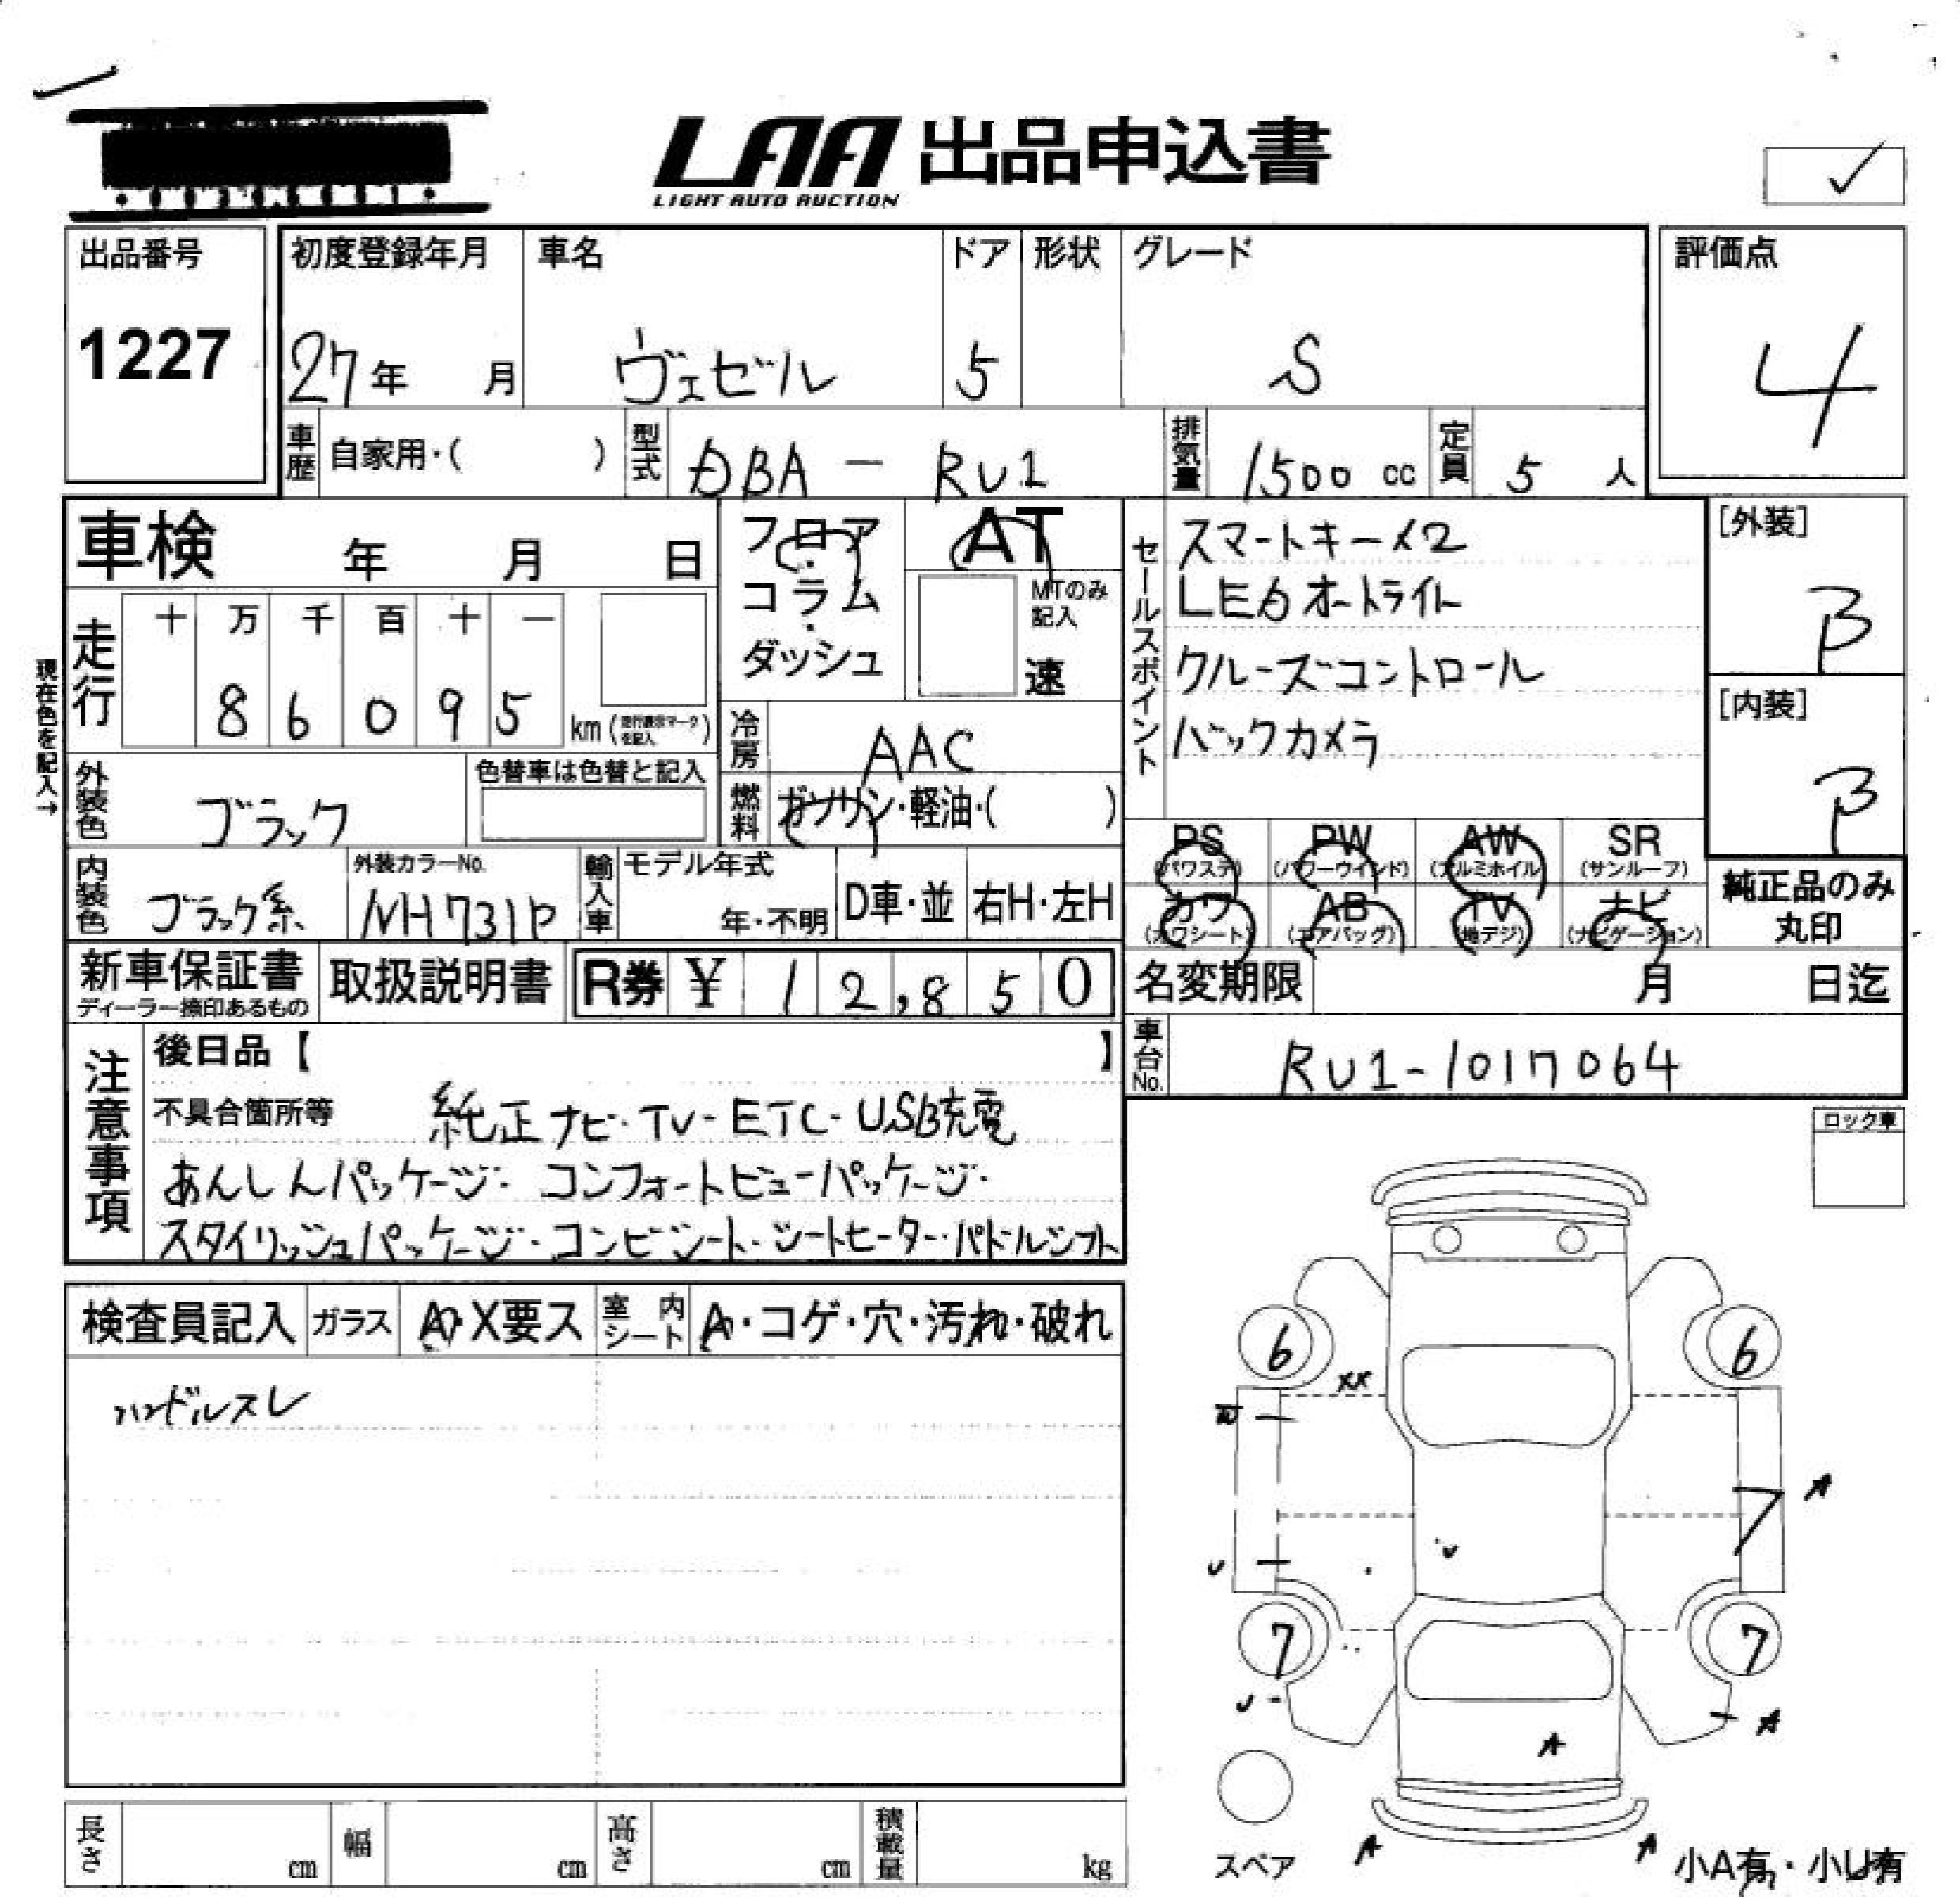 LAA 出品申込書
LIGHT AUTO AUCTION
出品番号
1227
初度登録年月
27年 月
車名
ヴェゼル
ドア
5
形状
グレード
S
評価点
4
車歴 自家用・( )
型式 DBA - RU1
排気量 1500 cc
定員 5 人
車検 年 月 日
フロア・コラム・ダッシュ
AT
MTのみ記入
速
走行 十 万 千 百 十 一
8 6 0 9 5 km (走行表示マークを記入)
現在色を記入→
冷房 AAC
燃料 ガソリン・軽油・( )
外装色 ブラック
色替車は色替と記入
内装色 ブラック系
外装カラーNo.
NH731P
輸入車 モデル年式
年・不明
D車・並
右H・左H
セールスポイント
スマートキー×2
LEDオートライト
クルーズコントロール
バックカメラ
[外装]
B
[内装]
B
PS (パワステ)
PW (パワーウィンド)
AW (アルミホイル)
SR (サンルーフ)
カワ (カワシート)
AB (エアバッグ)
TV (地デジ)
ナビ (ナビゲーション)
純正品のみ
丸印
新車保証書
ディーラー捺印あるもの
取扱説明書
R券 ¥ 12,850
名変期限 月 日迄
車台No. RU1-1017064
注意事項
後日品【 】
不具合箇所等 純正ナビ・TV-ETC-USB充電
あんしんパッケージ・コンフォートビューパッケージ・
スタイリッシュパッケージ・コンビシート・シートヒーター・パドルシフト
ロック車
検査員記入
ガラス A・X要ス
室内シート A・コゲ・穴・汚れ・破れ
ハンドルスレ
6
6
XX
W
A
7
U
U
7
7
U
A
A
A
A
スペア
小A有・小U有
長さ cm
幅 cm
高さ cm
積載量 kg